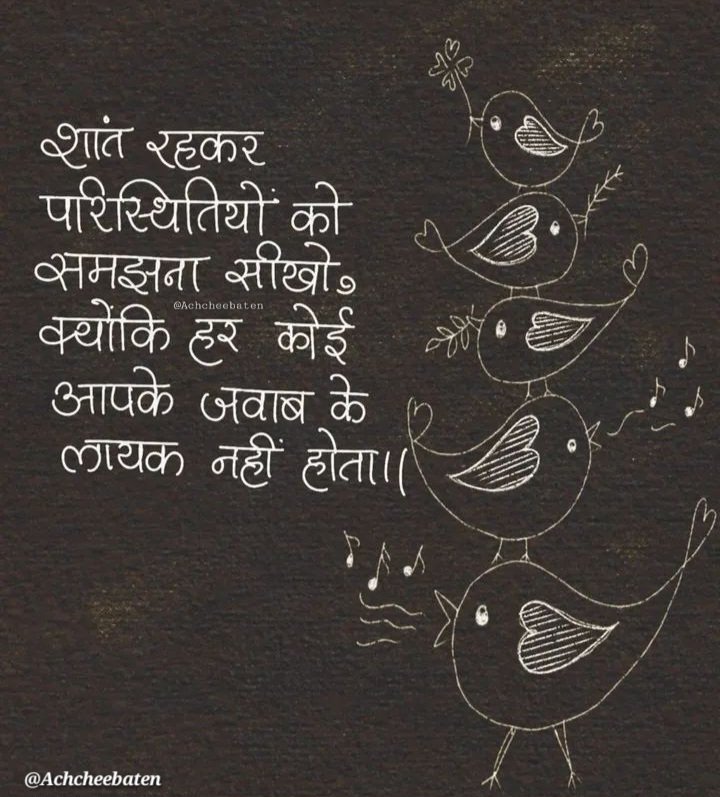 शांत रहकर
परिस्थितियों को
समझना सीखो,
@Achcheebaten
क्योंकि हर कोई
आपके जवाब के
लायक नहीं होता।।
@Achcheebaten